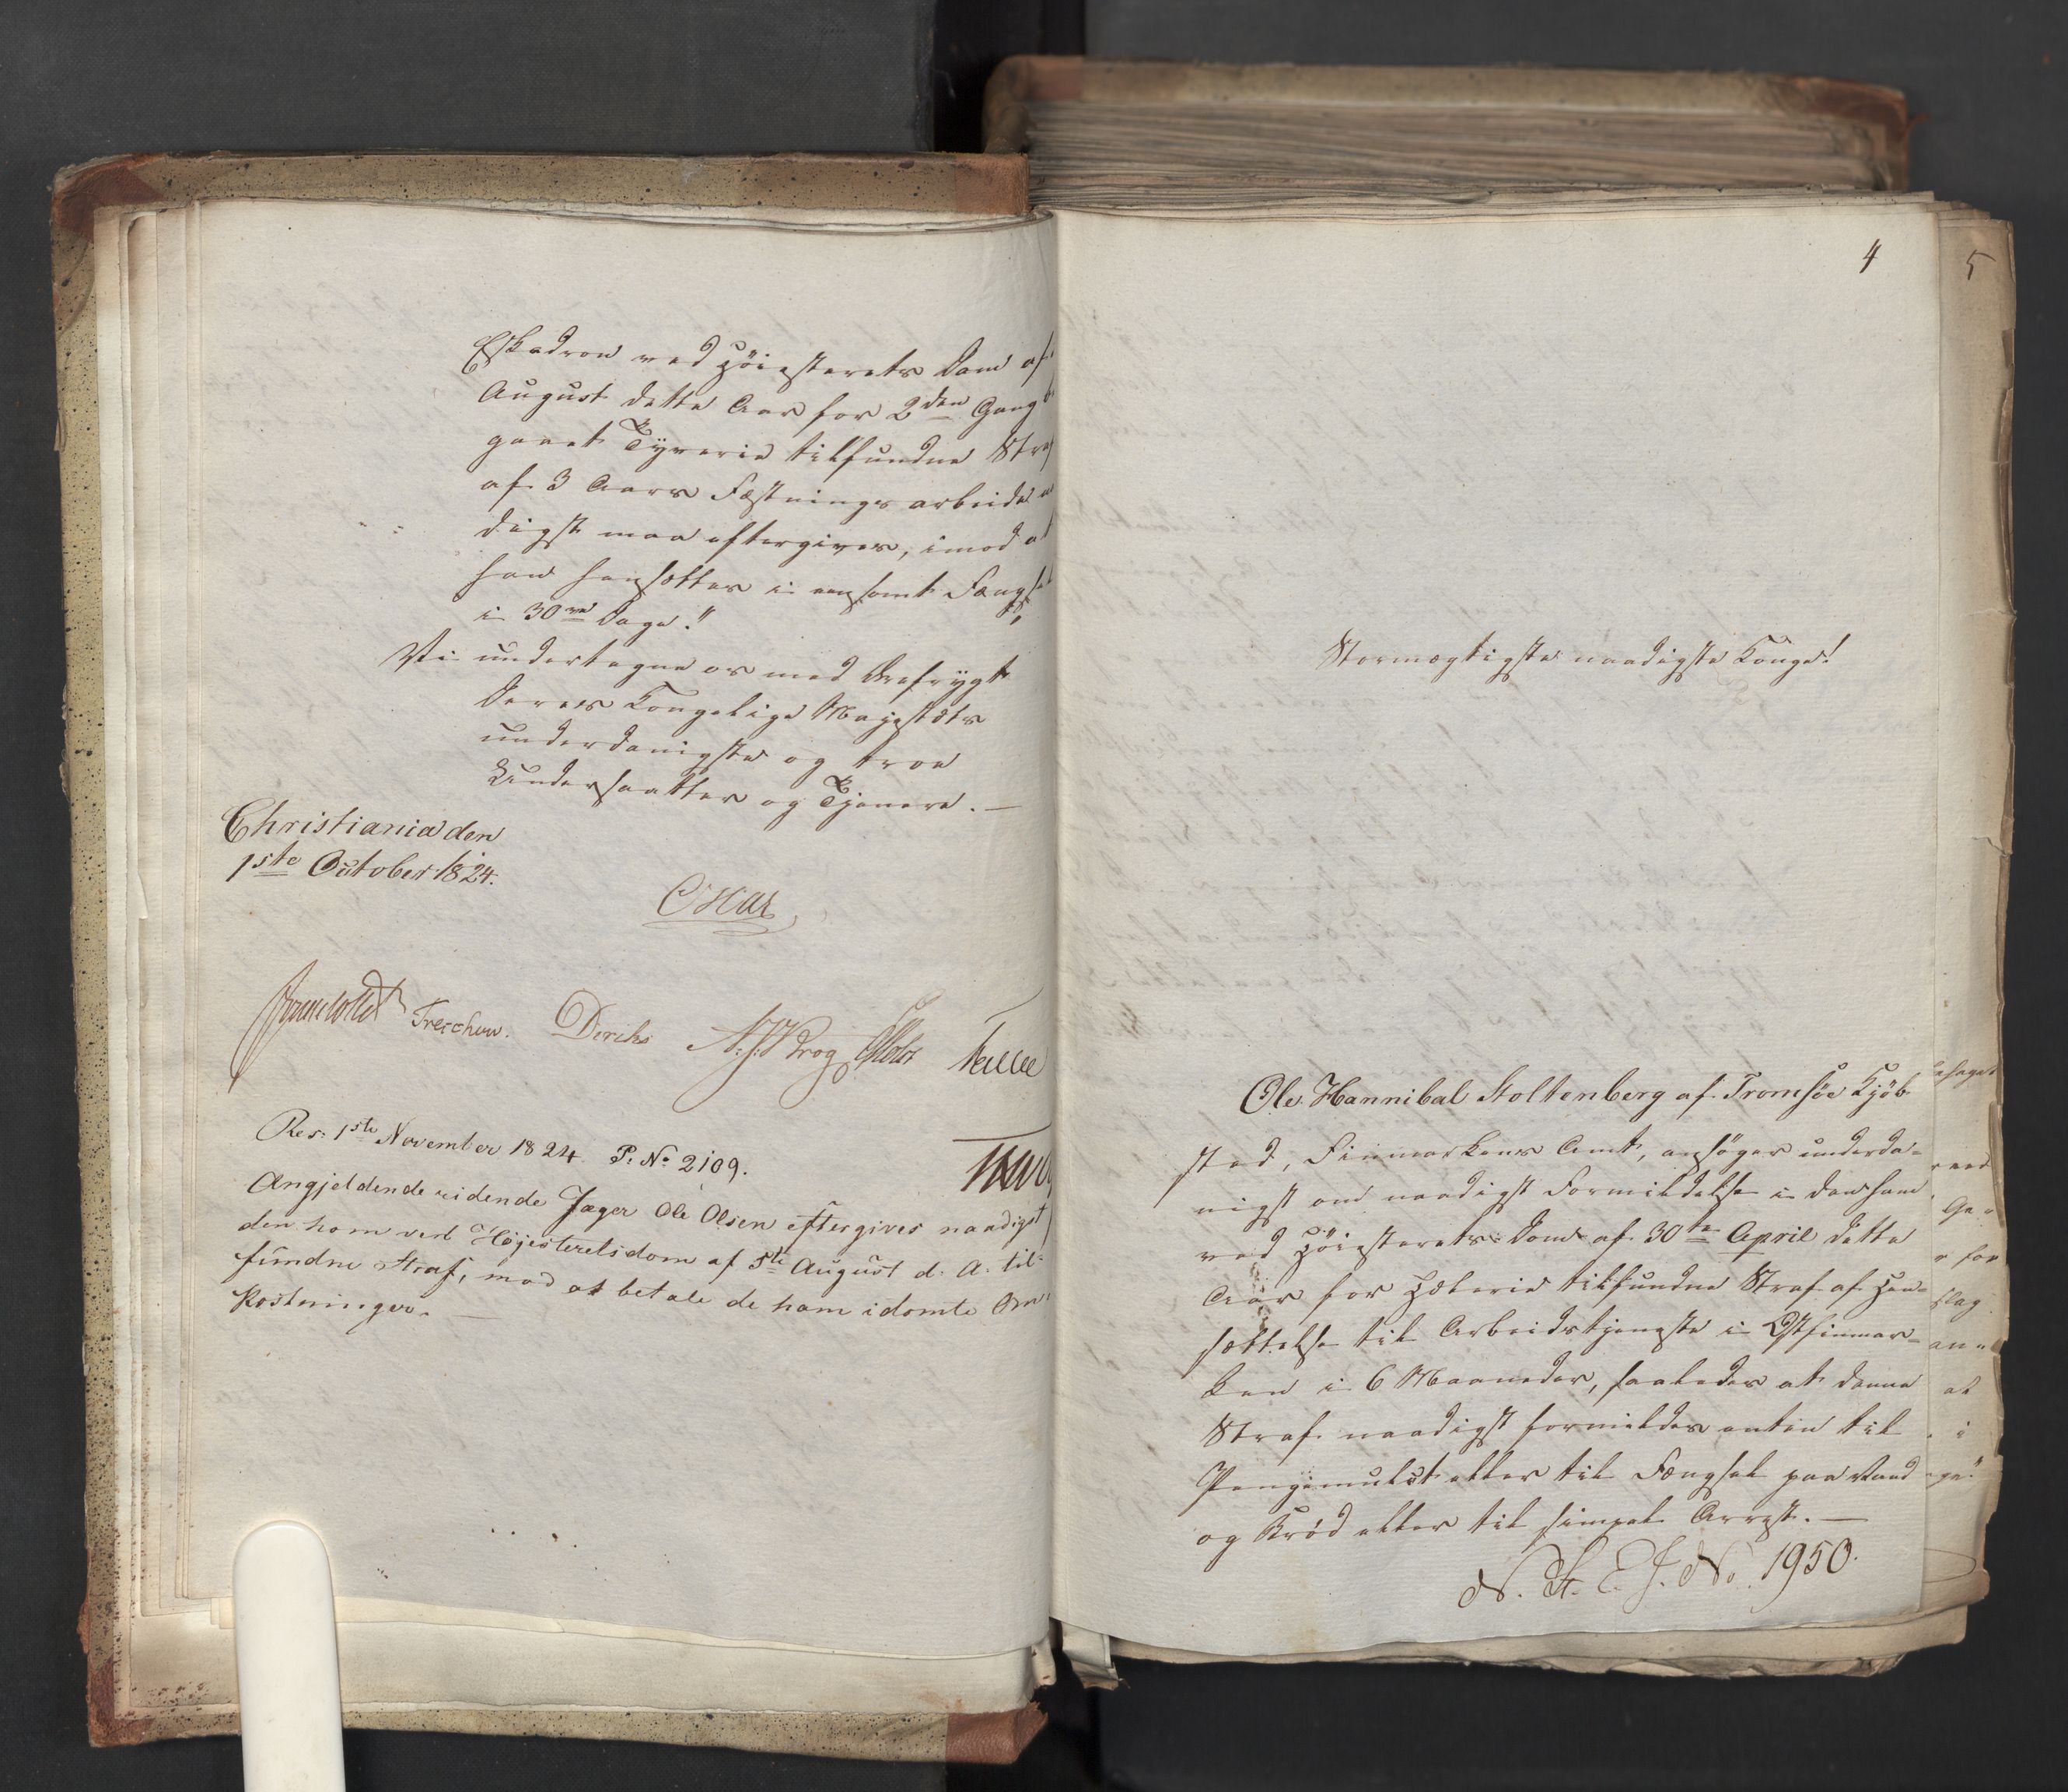 Eskadron ved Höiesterets Dom af
August dette Aar for 2den Gang
gaaet Tyverie tilfundne Straf
af 3 Aars Fæstningsarbeide
digst maa eftergives, imod at
han hensættes i eensomt Fængsel
i 30ve Dage."
Vi undertegne os med Ærefrygt
Deres Kongelige Majestæts
underdanigste og troe
Undersaatter og Tjenere. —
Christiania den
1ste October 1824.
Oscar
Sommerhielm Treschow. Diriks
Res: 1ste November 1824 P: No 2109.
Angjeldende ridende Jæger Ole Olsen eftergives naadigst
den ham ved Højesteretsdom af 5te August d. A. til-
fundne Straf, mod at betale de ham idömte Om-
kostninger. —
4
5
Stormægtigste naadigste Konge!
Ole Hannibal Stoltenberg af Tromsöe Kjöb-
sted, Finmarkens Amt, ansöger underda-
nigst om naadigst Formildelse i den ham
ved Höiesterets Dom af 30te April dette
Aar for Hæleri tilfundne Straf af Hen-
sættelse til Arbeidstjeneste i Ostfinmar-
ken i 6 Maaneder, saaledes at denne
Straf naadigst formildes enten til
Pengemulct eller til Fængsel paa Vand
og Bröd eller til simpel Arrest. —
N. St. E. J. No. 1950.